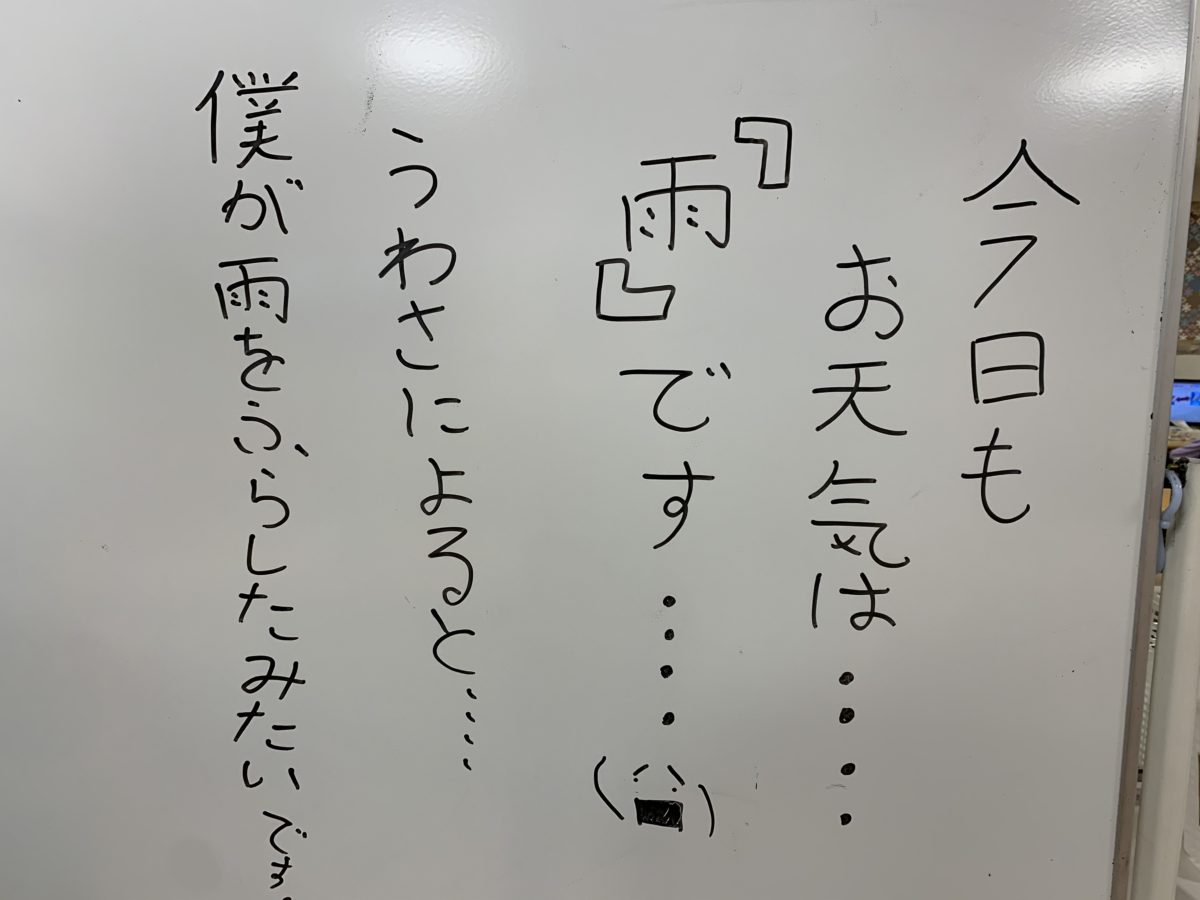 今日も
お天気は・・・・
『雨』です・・・・( ^■^ )
うわさによると・・・・
僕が雨をふらしたみたいです。